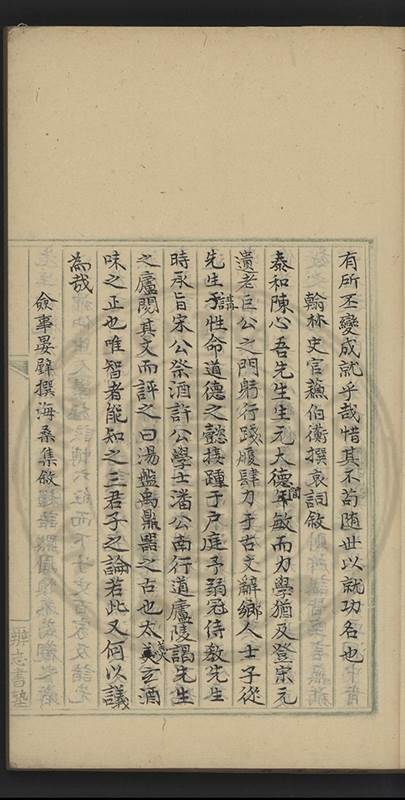 有所丕變成就乎哉惜其不苟随世以就功名也
翰林史官蘓伯衡撰哀詞敘
泰和陳心吾先生生元大德間年敏而力學猶及登宋元
遺老巨公之門躬行踐履肆力于古文辭鄉人士子從
先生予講性命道德之懿接踵于户庭予弱冠侍教先生
時承旨宋公祭酒許公學士潘公南行道廬陵謁先生
之廬閱其文而評之曰湯盤禹鼎器之古也太羹玄酒
味之正也唯智者能知之三君子之論若此又何以議
為哉
僉事晏璧撰海桑集敘
辨志書塾